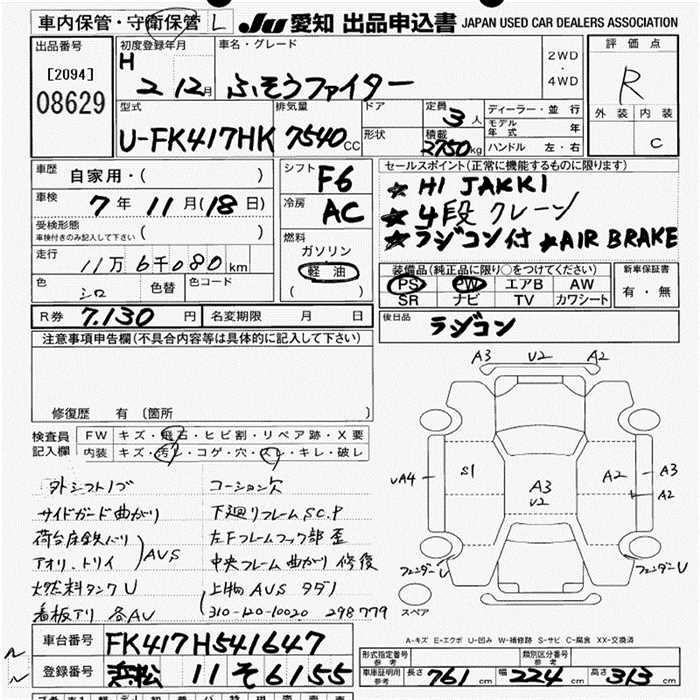 車内保管・守衛保管 L JU 愛知 出品申込書 JAPAN USED CAR DEALERS ASSOCIATION
出品番号 初度登録年月 車名・グレード 評価点
[2094] H 2 12月 ふそうファイター 2WD ・ 4WD R
08629 型式 排気量 ドア 定員 3人 ディーラー・並行 外装 内装
モデル年式 年
U-FK417HK 7540cc 形状 積載 2750kg ハンドル 左・右 C
車歴 自家用・( ) シフト F6 セールスポイント(正常に機能するものに限ります)
車検 7年 11月(18日) 冷房 AC ★ HI JAKKI
受検形態 ★ 4段 クレーン
車検付きのみ記入して下さい ( ) 燃料 ★ ラジコン付 ★AIR BRAKE
走行 11万 6千080km ガソリン
軽油 装備品(純正品に限り○をつけてください) 新車保証書
色 シロ 色替 色コード ( ) PS PW エアB AW 有・無
SR ナビ TV カワシート
R券 7.130円 名変期限 月 日 後日品 ラジコン
注意事項申告欄(不具合内容等は具体的に記入して下さい)
修復歴 有 (箇所
A3 U2 A2
検査員 FW キズ・飛石・ヒビ割・リペア跡・X要
記入欄 内装 キズ・汚れ・コゲ・穴・スレ・キレ・破レ
UA4 S1 A3 U2 A2 A3 A2
外シフトノブ コーション欠
サイドガード曲がり 下廻りフレームSC.P
荷台床鉄バリ 左Fフレームフック部歪
アオリ、トリイ AVS 中央フレーム曲がり 修復
燃料タンクU 上物 AVS サダノ
看板アリ 各AU 310-120-10020 298779
フェンダーU フェンダーU
スペア
A-キズ E-エクボ U-凹み W-補修跡 S-サビ C-腐食 XX-交換済
車台番号 FK417H541647 形式指定番号 参考 類別区分番号 参考
登録番号 浜松 11 そ 6155 車庫証明用 参考 長さ 761cm 幅 224cm 高さ 313cm